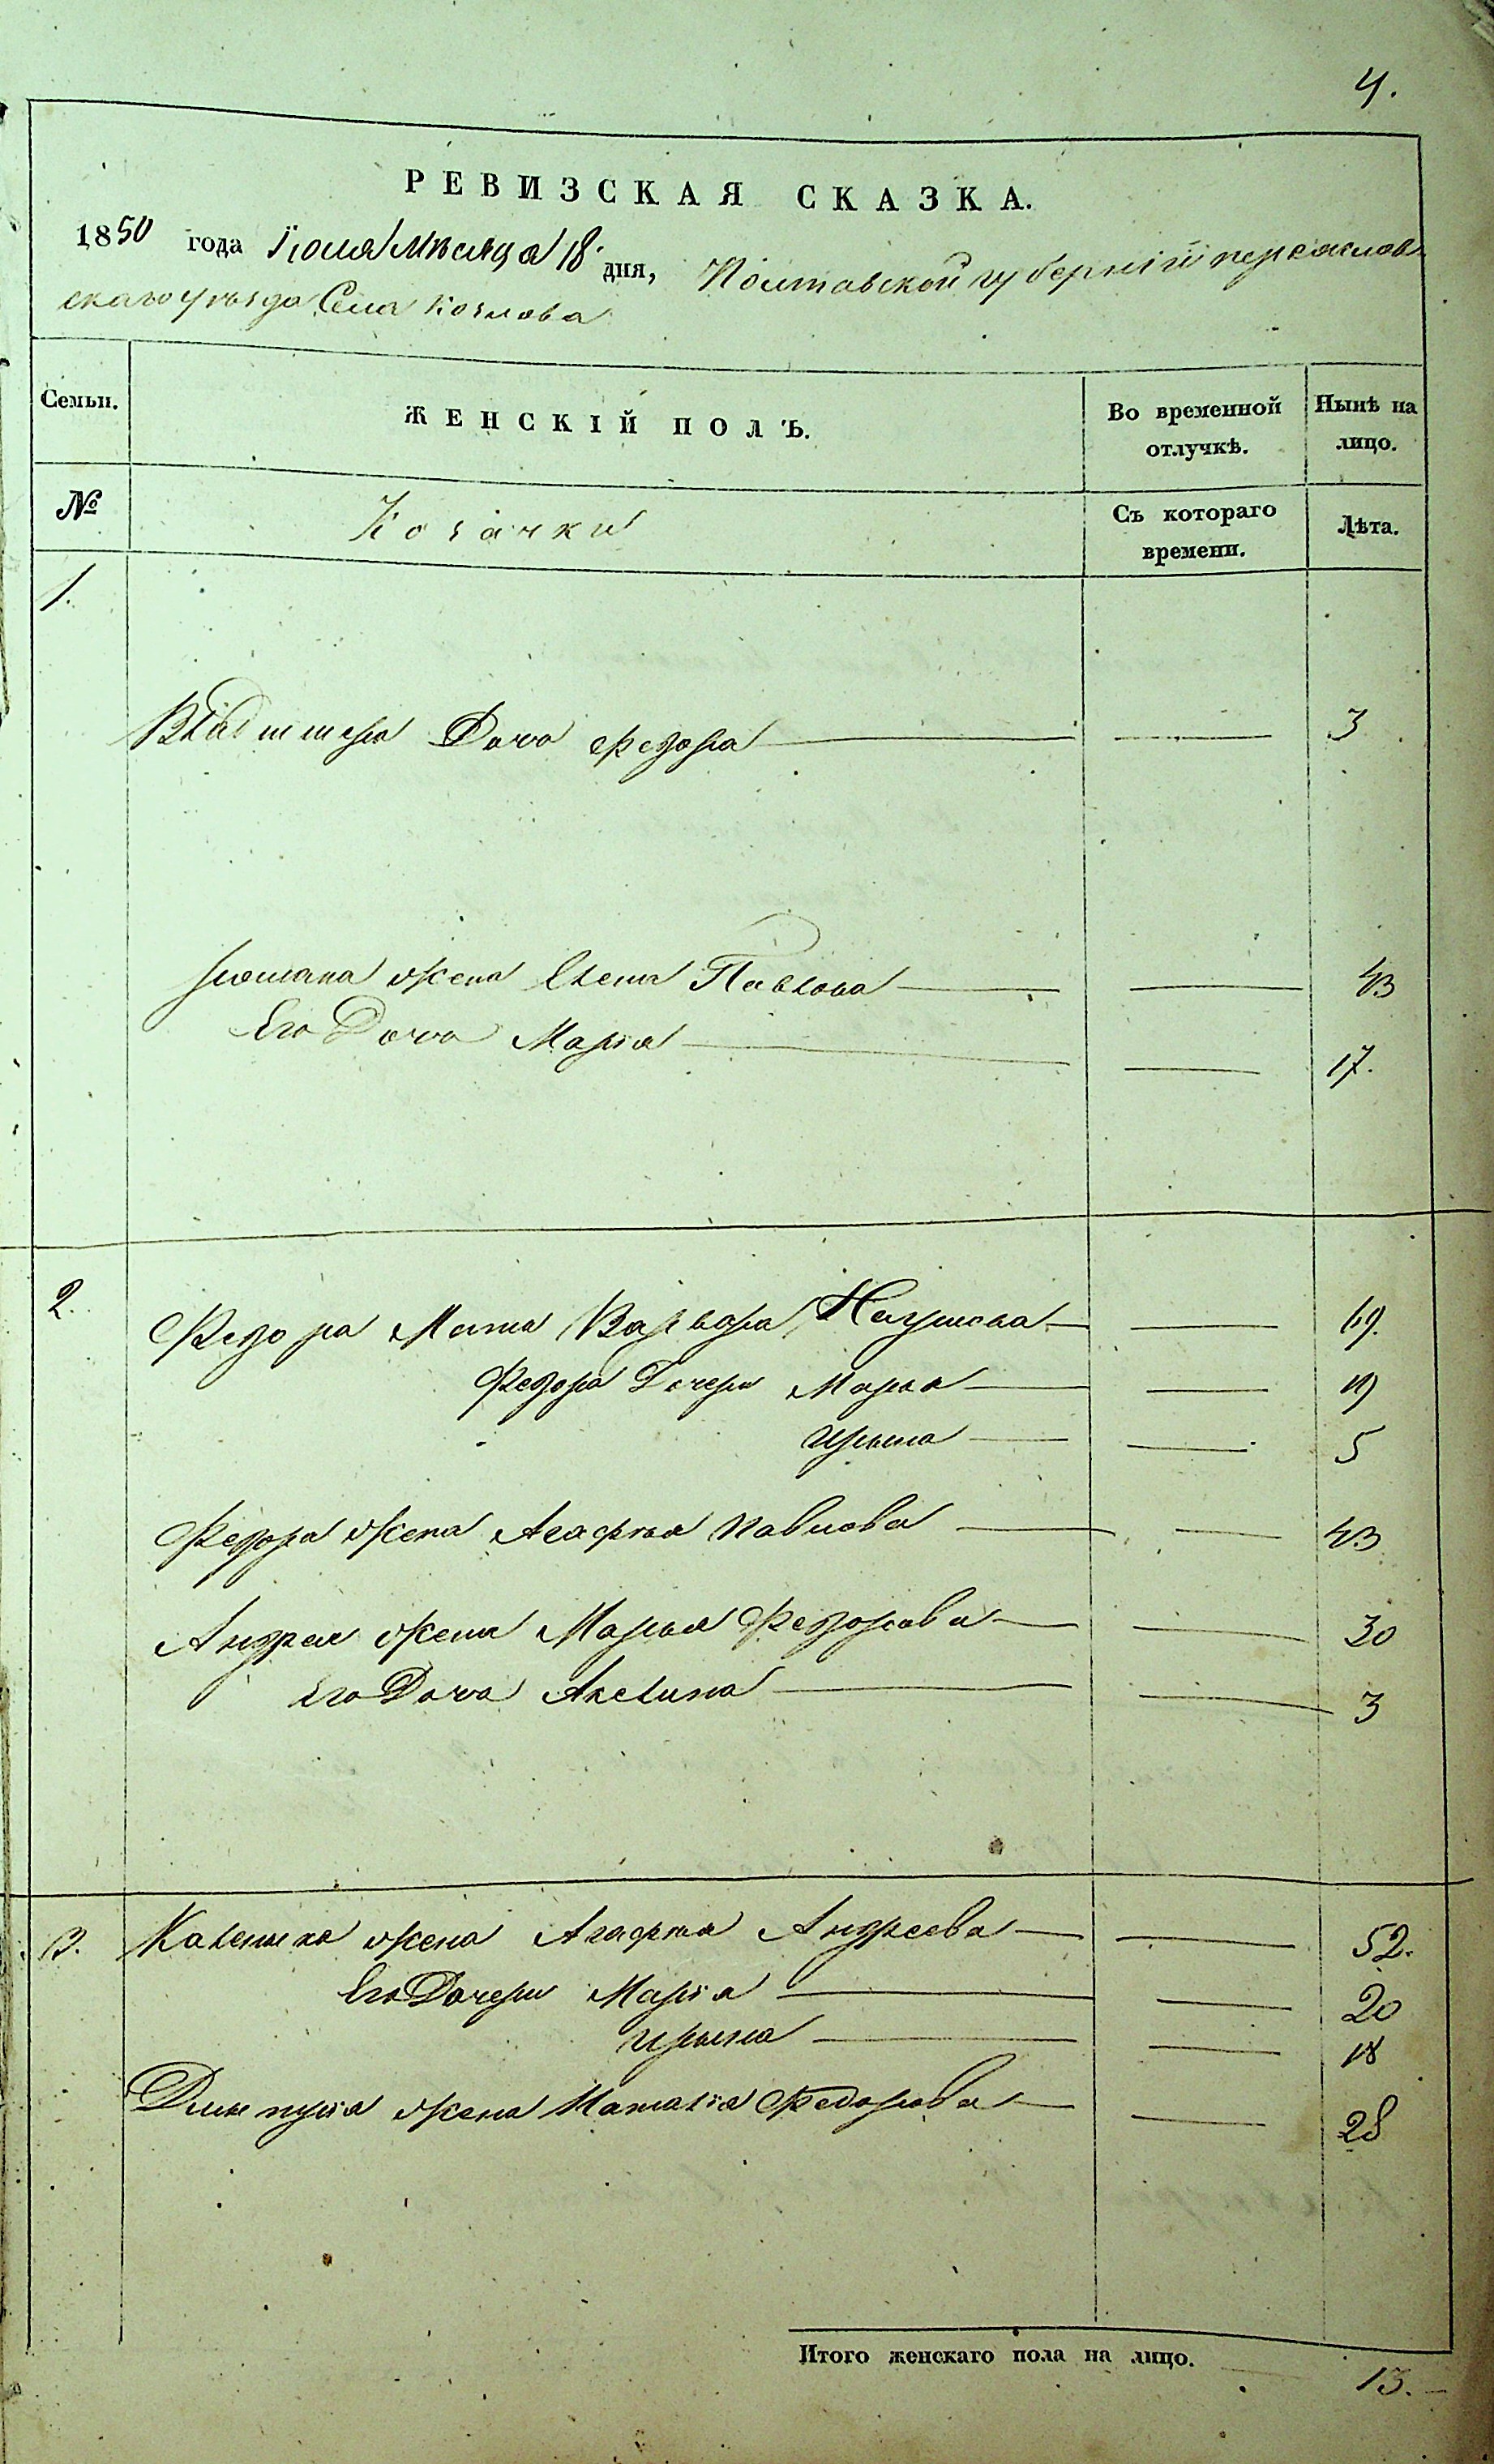 4.
РЕВИЗСКАЯ СКАЗКА.
1850 года Іюля Мѣсяца 18 дня, Полтавской губерніи переяслав
скаго уѣзда Села Козлова
Семьи. ЖЕНСКІЙ ПОЛЪ. Во временной отлучкѣ. Нынѣ на лицо.
№ Козачки Съ котораго времени. Лѣта.
1.
Дочь Федора 3
жена Елена Павлова 43
Его Дочь Марія 17.
2.
Федора Мать Варвара 69.
Федора Дочери Марья 19
Ирына 5
Федора жена Агафья Павлова 43
Андрея жена Марья Федорова 30
Его Дочь Акелина 3
3. жена Агафья Андреева 52.
Его Дочери Марія 20
Ирына 18
Дмытрія жена Наталія Федорова 28
Итого женскаго пола на лицо. 13.